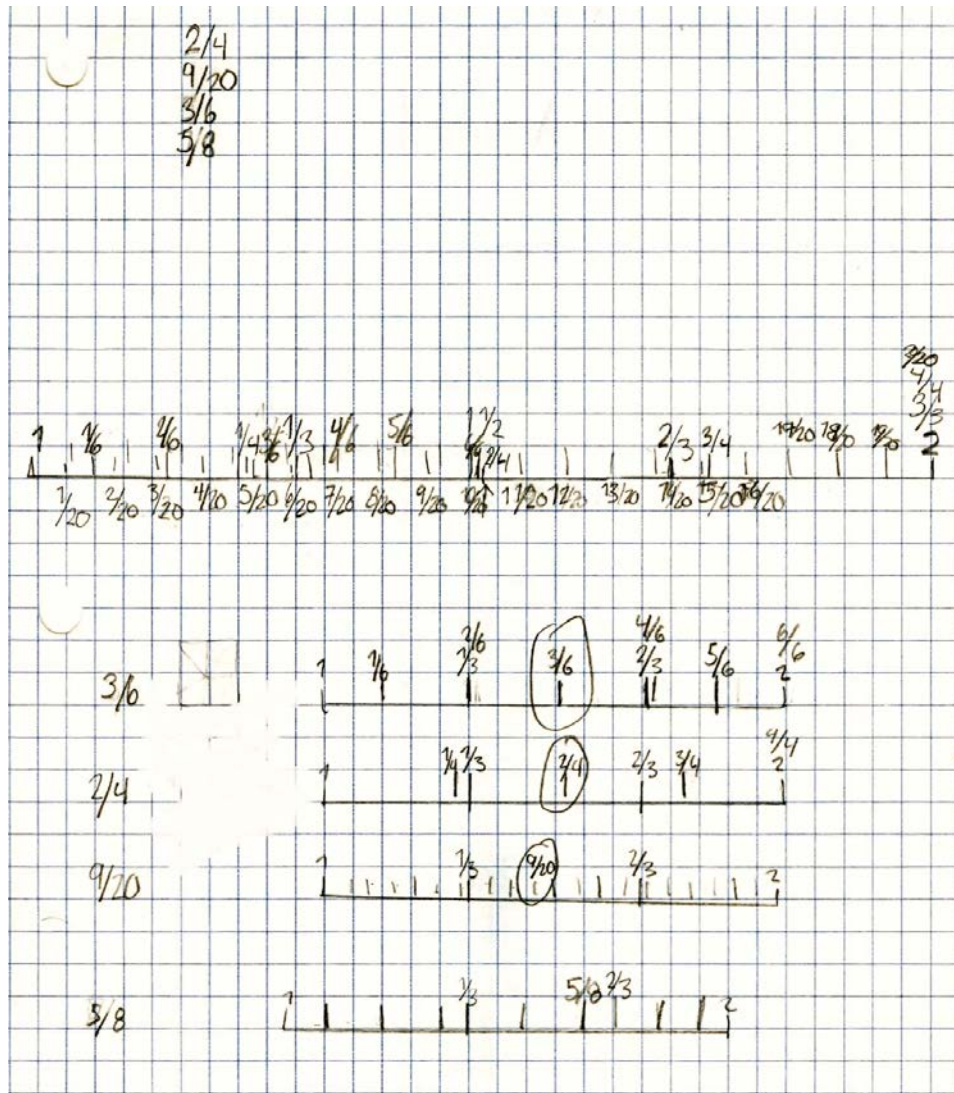 2/4
9/20
3/6
5/8
2/20
4/4
3/3
1 1/6 2/6 1/4 3/6 1/3 4/6 5/6 1/2 2/4 2/3 3/4 17/20 18/20 19/20 2
1/20 2/20 3/20 4/20 5/20 6/20 7/20 8/20 9/20 10/20 11/20 12/20 13/20 14/20 15/20 16/20
2/6 4/6 6/6
3/6 1 1/6 1/3 3/6 2/3 5/6 2
4/4
2/4 1 1/4 1/3 2/4 2/3 3/4 2
9/20 1 1/3 9/20 2/3 2
5/8 1 1/3 5/8 2/3 2